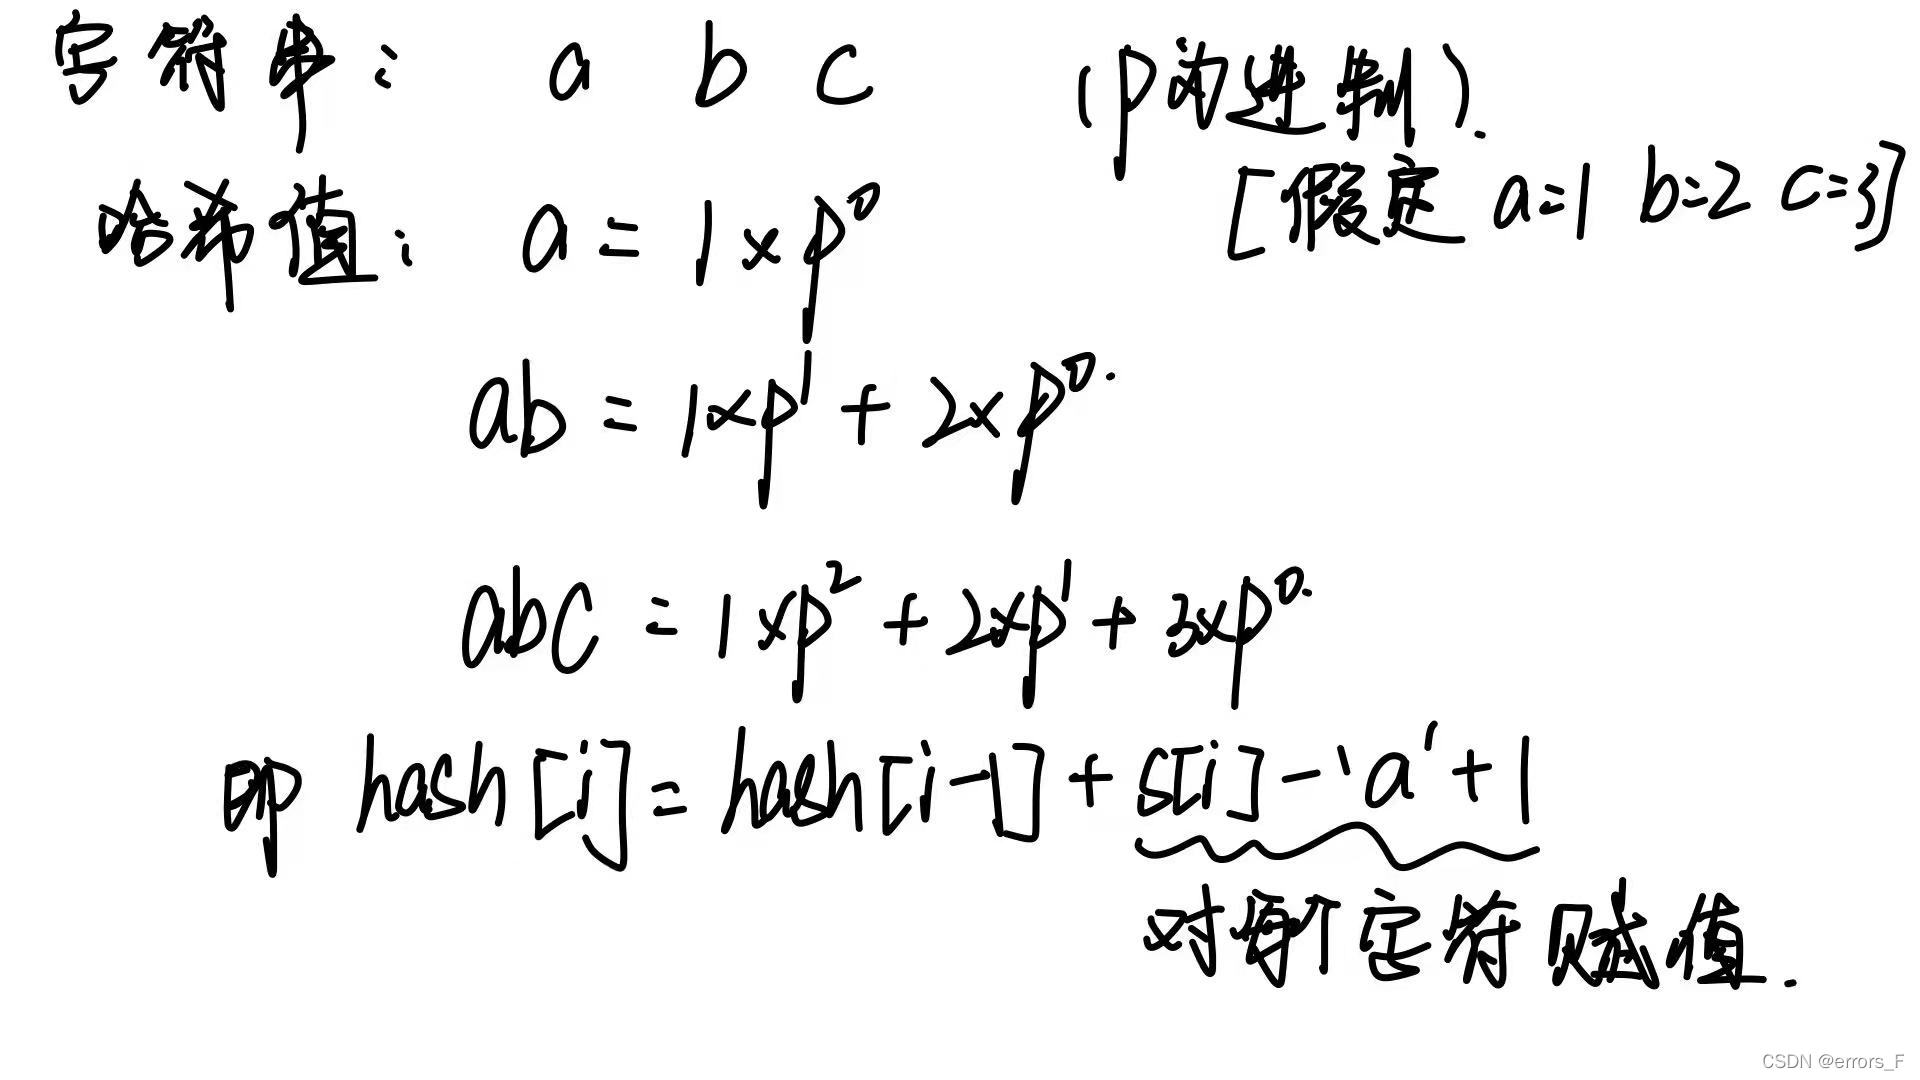 字符串： a b c （p为进制）.
[假定 a=1 b=2 c=3]
哈希值： a = 1×p⁰
ab = 1×p¹ + 2×p⁰.
abc = 1×p² + 2×p¹ + 3×p⁰.
即 hash[i] = hash[i-1] + s[i] - 'a' + 1
对每个字符赋值.
CSDN @errors_F